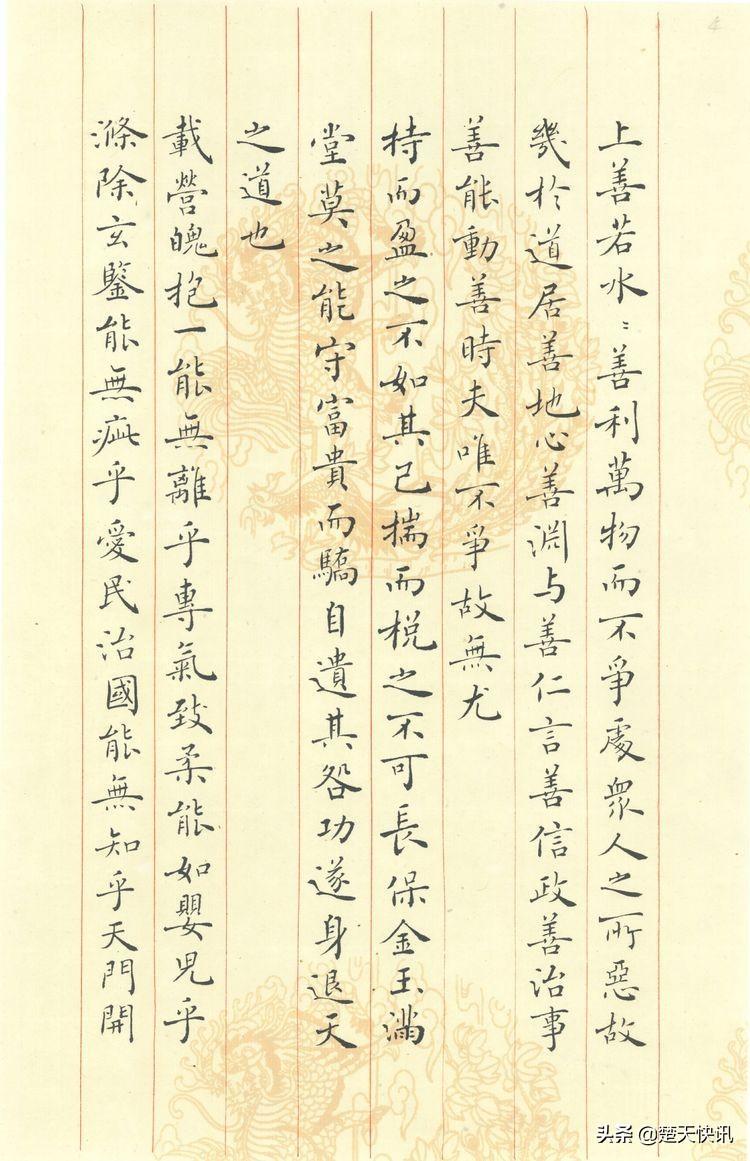 上善若水〻善利萬物而不爭處衆人之所惡故
幾於道居善地心善淵与善仁言善信政善治事
善能動善時夫唯不爭故無尤
持而盈之不如其己揣而梲之不可長保金玉滿
堂莫之能守富貴而驕自遺其咎功遂身退天
之道也
載營魄抱一能無離乎專氣致柔能如嬰兒乎
滌除玄鑒能無疵乎愛民治國能無知乎天門開
4
头条 @楚天快讯